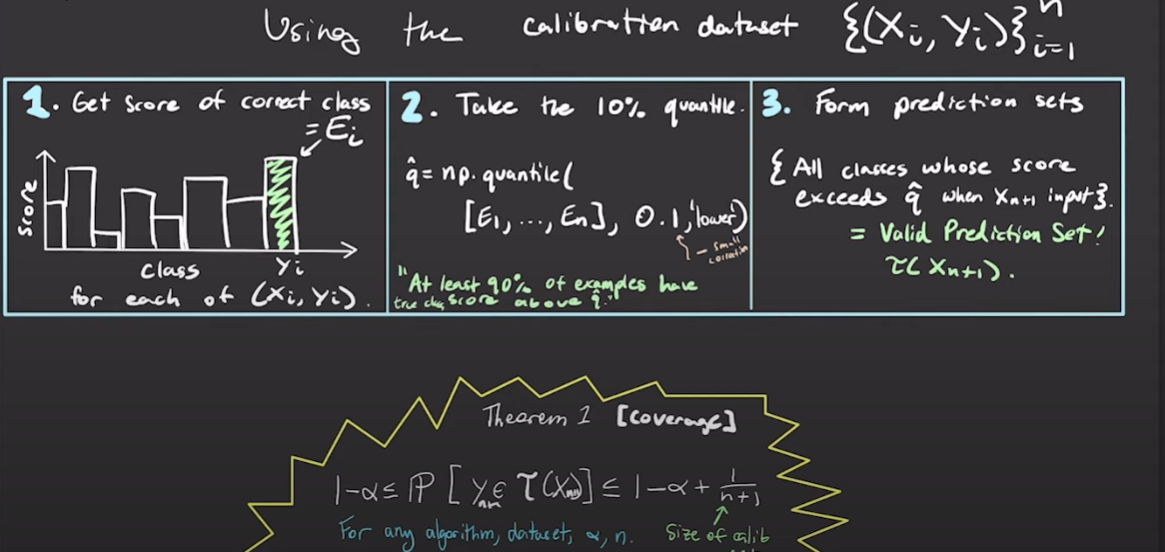 Using the calibration dataset {(Xi, Yi)}ⁿi=1
1. Get score of correct class
= Ei
Score
class Yi
for each of (Xi, Yi).
2. Take the 10% quantile.
q̂ = np.quantile(
[E1, ..., En], 0.1, 'lower')
- small
"At least 90% of examples have
true class score above q̂."
3. Form prediction sets
{All classes whose score
exceeds q̂ when Xn+1 input}.
= Valid Prediction Set!
τ(Xn+1).
Theorem 1 [Coverage]
1-α ≤ ℙ[Yn+1 ∈ τ(Xn+1)] ≤ 1-α + 1/(n+1)
For any algorithm, dataset, α, n.
Size of calib